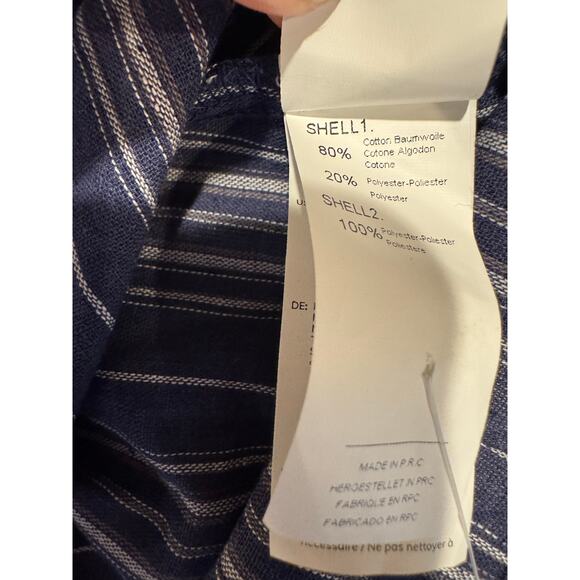 SHELL1.
80% Cotton Baumwolle
Cotone Algodon
Cotone
20% Polyester-Poliester
Polyester
SHELL2.
100% Polyester-Poliester
Poliestere
DE:
MADE IN P.R.C
HERGESTELLET IN PRC
FABRIQUE EN RPC
FABRICADO EN RPC
nécessaire / Ne pas nettoyer à